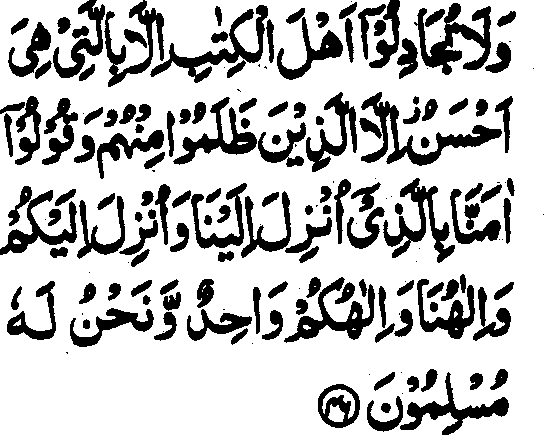 وَلَا تُجَادِلُوْٓا اَهْلَ الْكِتٰبِ اِلَّا بِالَّتِیْ هِیَ
اَحْسَنُ ۖ اِلَّا الَّذِیْنَ ظَلَمُوْا مِنْهُمْ وَقُوْلُوْٓا
اٰمَنَّا بِالَّذِیْۤ اُنْزِلَ اِلَیْنَا وَاُنْزِلَ اِلَیْكُمْ
وَاِلٰهُنَا وَاِلٰهُكُمْ وَاحِدٌ وَّنَحْنُ لَهٗ
مُسْلِمُوْنَ ﴿۴۶﴾